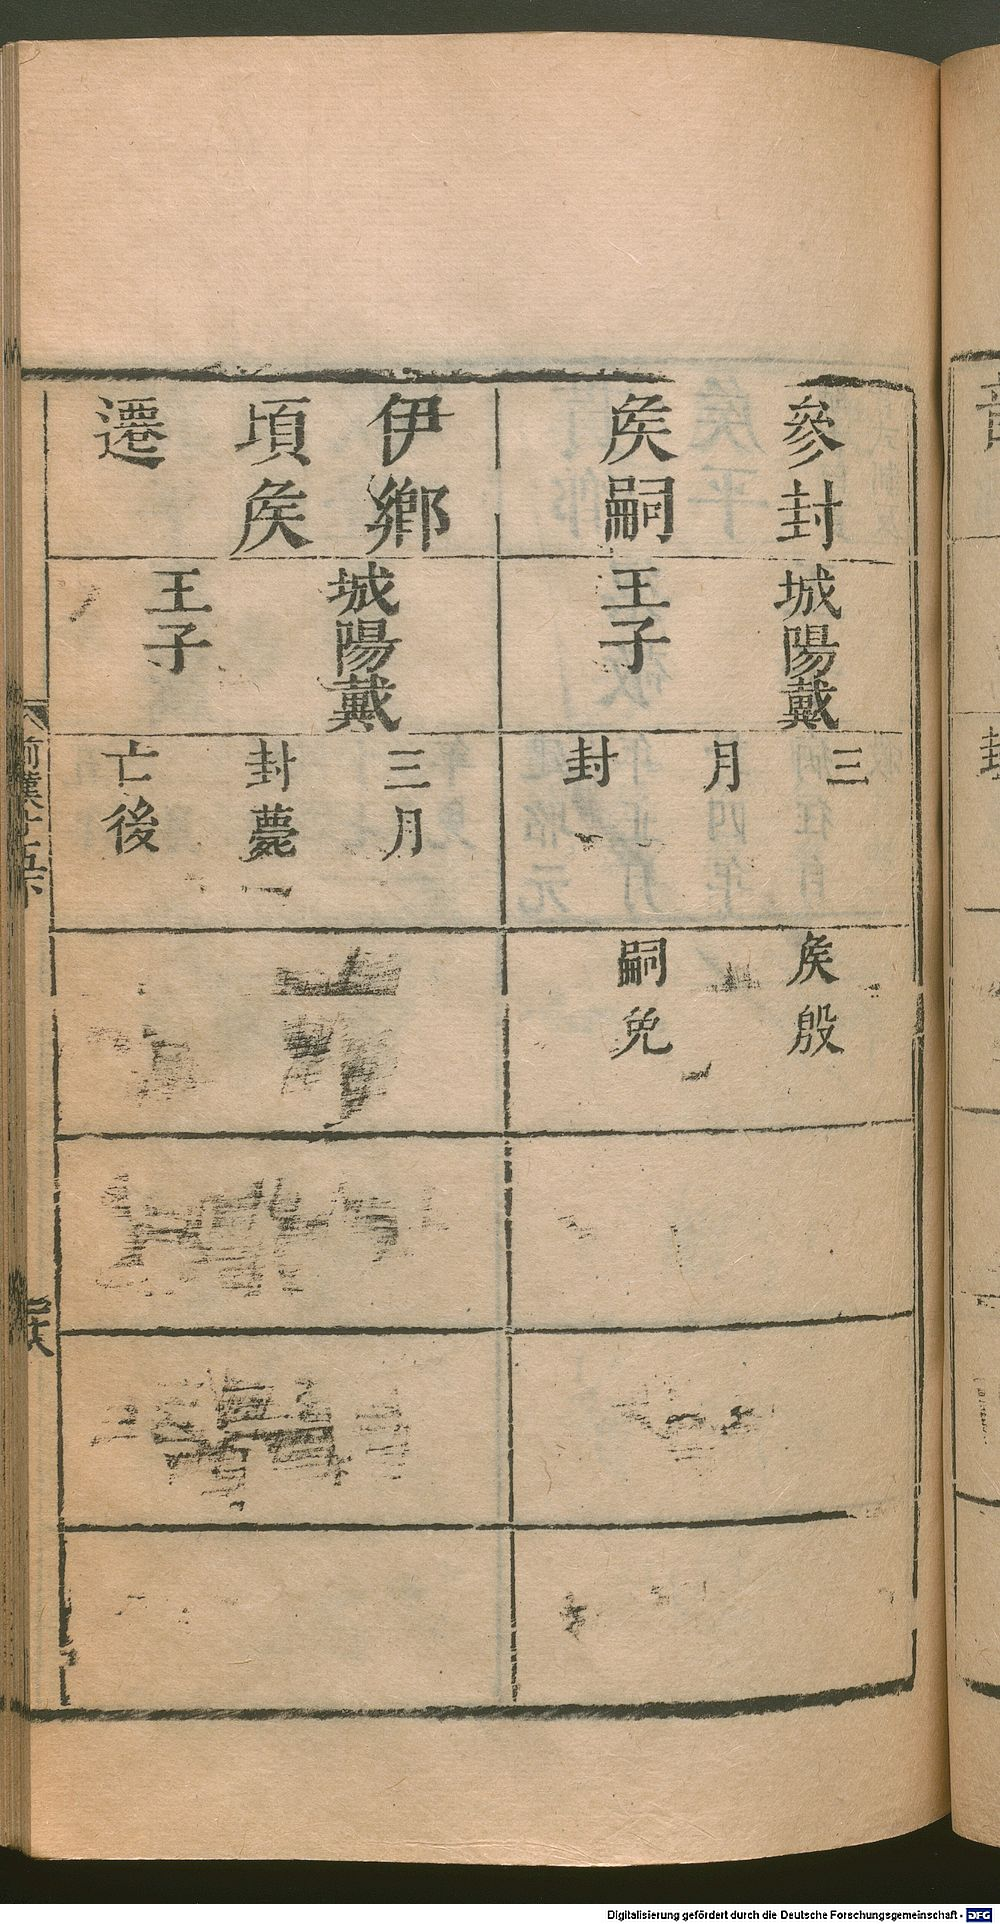 參封
矦嗣
城陽戴
王子
三
月
封
矦殷
嗣免
伊鄉
頃矦
遷
城陽戴
王子
三月
封薨
亡後
前漢十五下
Digitalisierung gefördert durch die Deutsche Forschungsgemeinschaft - DFG